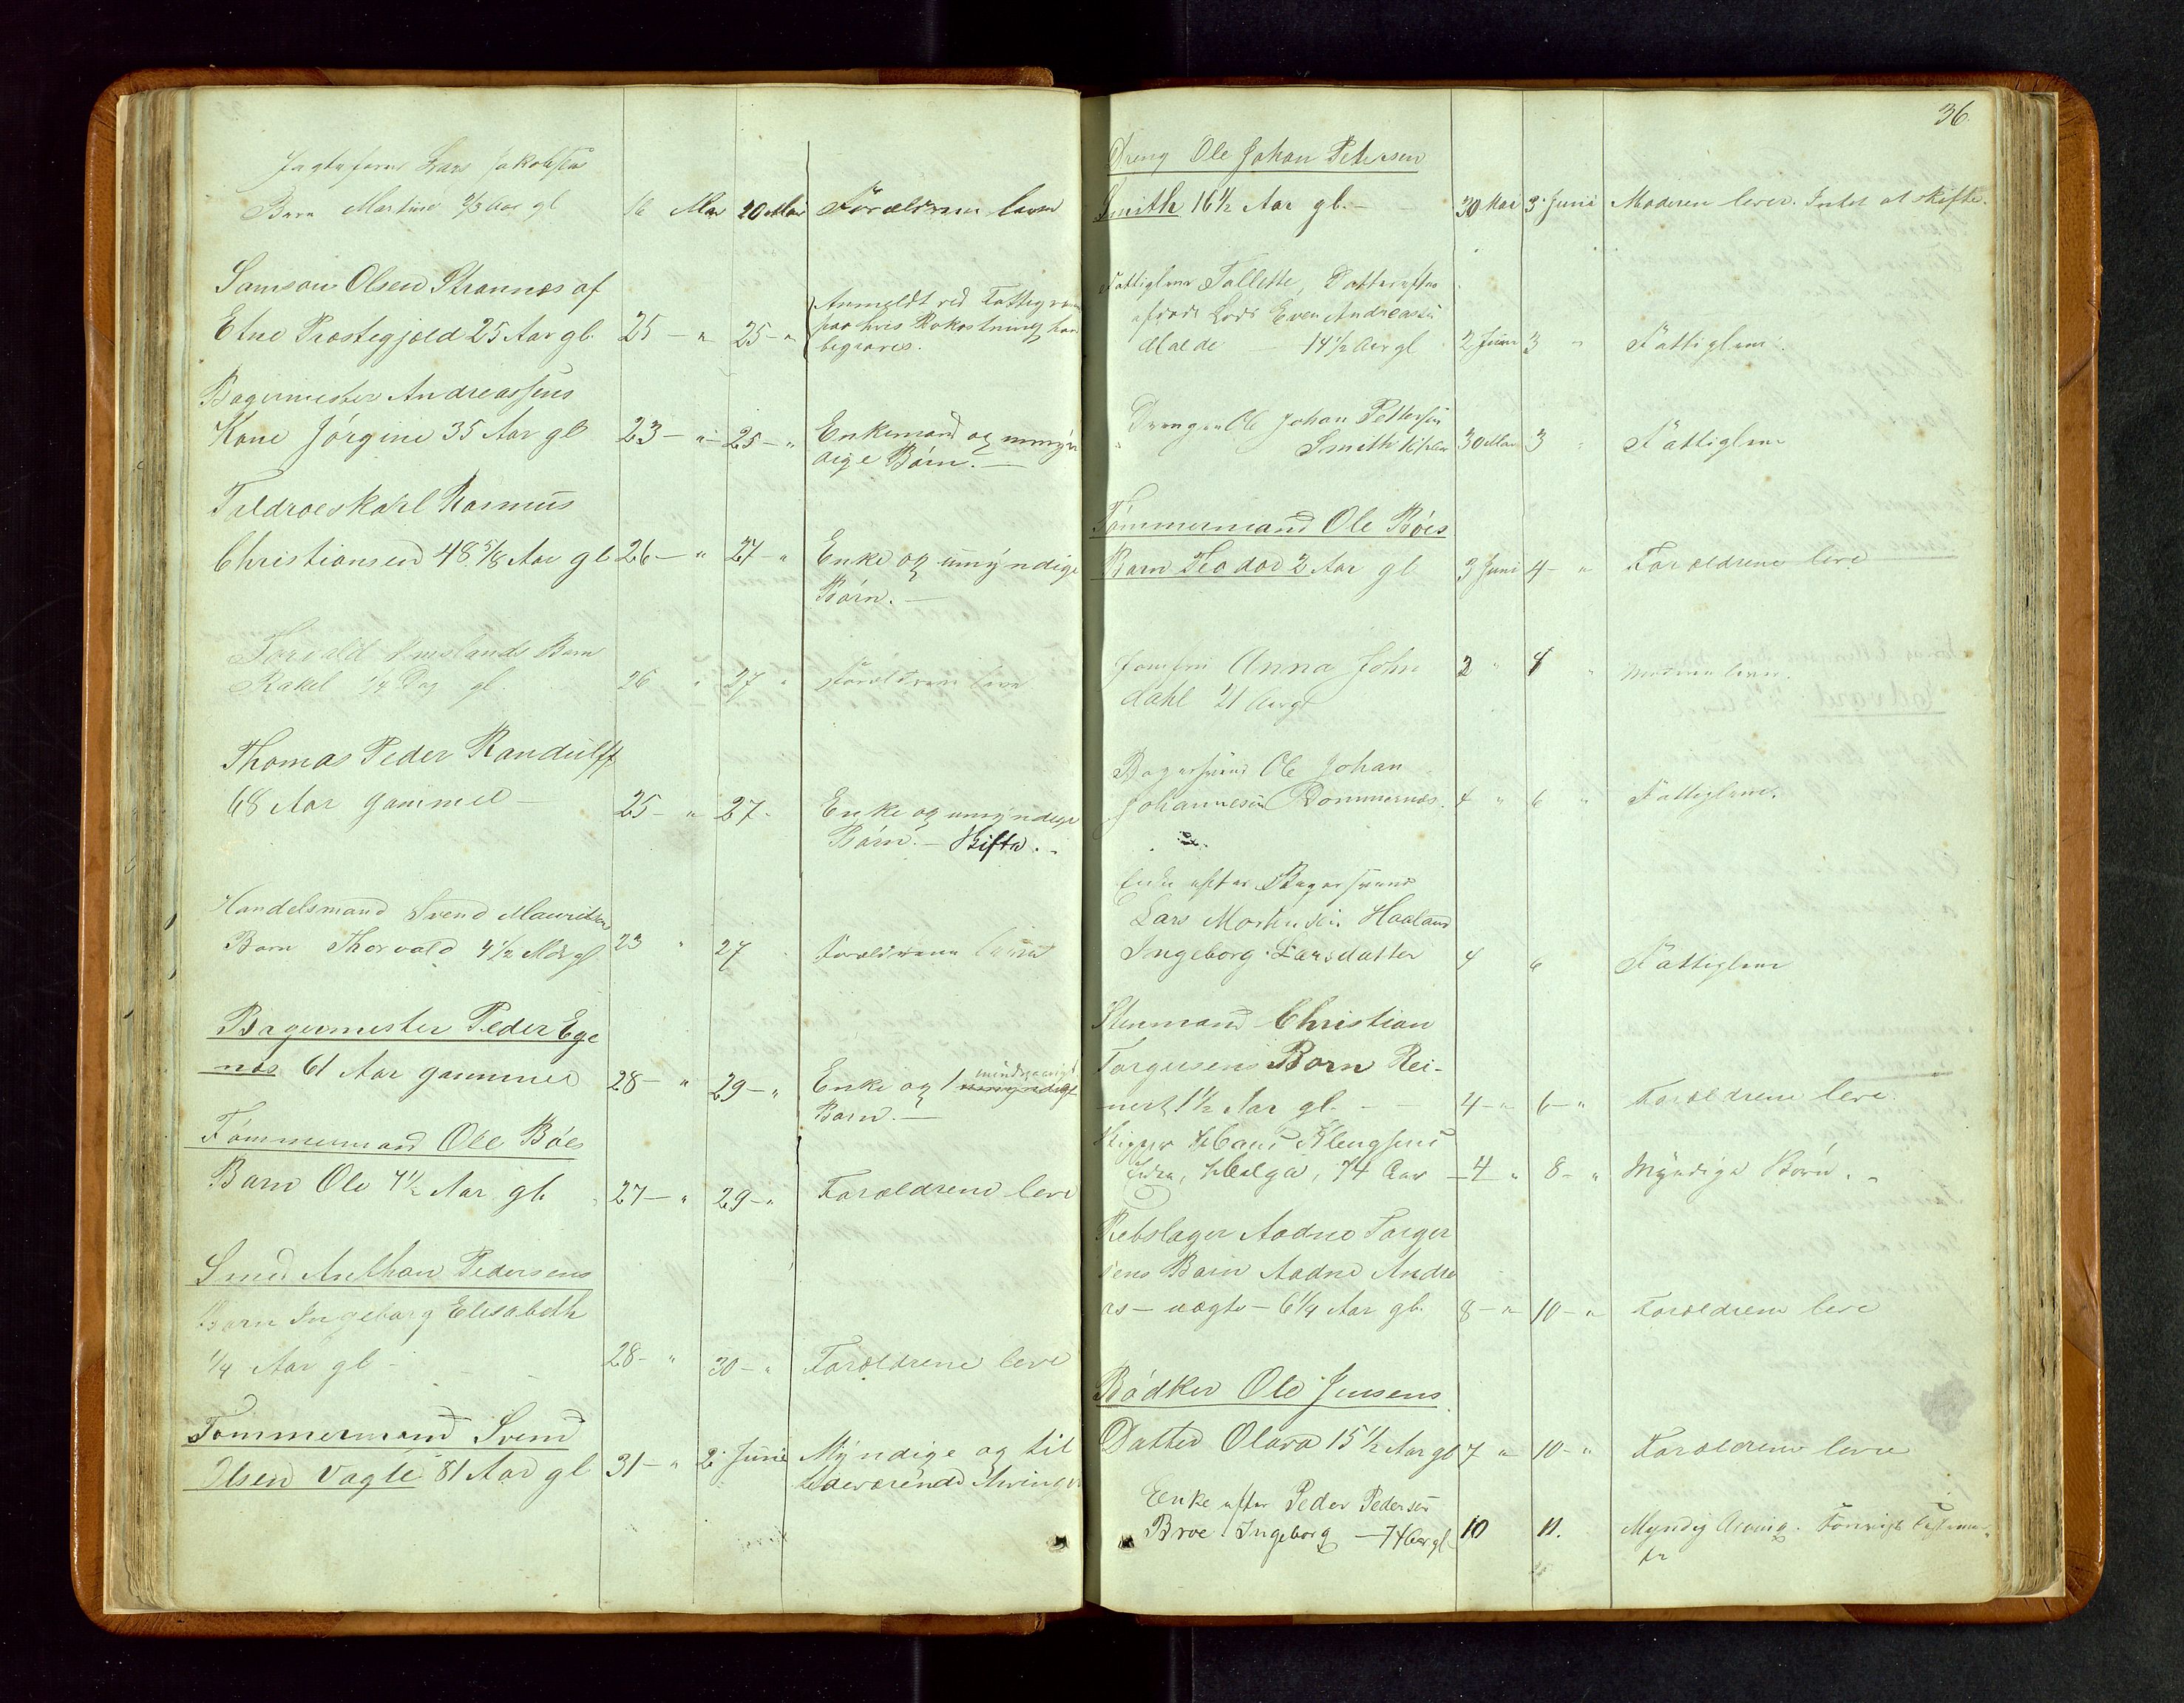 Jagtefører Lars Jakobsens
Barn Martine 2/3 Aar gl 16 Mai 20 Mai Forældrene lever
Samson Olsen Strannæs af
Etne Præstegjeld 25 Aar gl. 25 – " 25 – "
Anmeldt ved Fattigv
paa hvis Bekostning han
begraves.
Bagermester Andreassens
Kone Jørgine 35 Aar gl 23 – " 25 – " Enkemand og umyn
dige Børn. –
Toldroeskarl Rasmus
Christiansen 48 5/8 Aar gl 26 – " 27 – " Enke og umyndige
Børn. –
Barn
Rakel 1/4 Dag gl. 26 " 27 " Forældrene leve
Thomas Peder Randulff
68 Aar gammel – 25 – " 27 – Enke og umyndige
Børn. – Skifte. –
Handelsmand Svend Mauritzen
Barn Thorvald 4 1/2 Mdr gl 23 " 27 Forældrene leve
Bagermester Peder Ege
næs 61 Aar gammel 28 – " 29 – " Enke og 1 mindreaarigt umyndigt
Barn. –
Tømmermand Ole Bøes
Barn Ole 7 1/2 Aar gl. 27 – " 29 – " Forældrene leve
Smed Anthon Pedersens
Barn Ingeborg Elisabeth
1/4 Aar gl – 28 – " 30 – " Forældrene leve
Tømmermand Svend
Olsen Vagle 81 Aar gl 31 – " 2. Juni Myndige og til
stedeværende Arvinger
36
Dreng Ole Johan Petersen
Smith 16 1/2 Aar gl. – 30 Mai 3. Juni Moderen lever. Intet at skifte.
Fattiglem Tallette, Datter efter
afdøde Lods Even Andreassen
Malde – 14 1/2 Aar gl 2 Juni 3 " Fattiglem.
Drengen Ole Johan Pettersen
Smith 30 Mai 3 " Fattiglem
Tømmermand Ole Bøes
Barn Teodor 2 Aar gl 3 Juni 4 – " Forældrene leve
Jomfru Anna John
dahl 21 Aar gl 2 " 4 " Moderen lever.
Bagersvend Ole Johan
Johannesen Dommernæs. 4 " 6 " Fattiglem.
Enke efter Bagersvend
Lars Mortensen Haaland
Ingeborg Larsdatter 4 6 Fattiglem
Stenmand Christian
Torgersens Barn Rei-
nert 1 1/2 Aar gl. – – 4 – " 6 – " Forældrene leve.
Rigger Hans Klengsens
Enke, Helga, 74 Aar – 4 " 8 – " Myndige Børn. –
Rebslager Aadne Torger
sens Barn Aadne Andre
as – uægte – 6 1/4 Aar gl. 8 – " 10 – " Forældrene leve
Bødker Ole Jensens
Datter Olava 15 1/2 Aar gl 7 " 10 – " Forældrene leve
Enke efter Peder Pedersen
Broe Ingeborg – 74 Aar gl. 10 11. Myndig Arving.